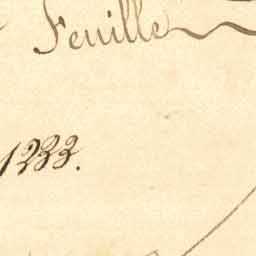 Feuille
1233.